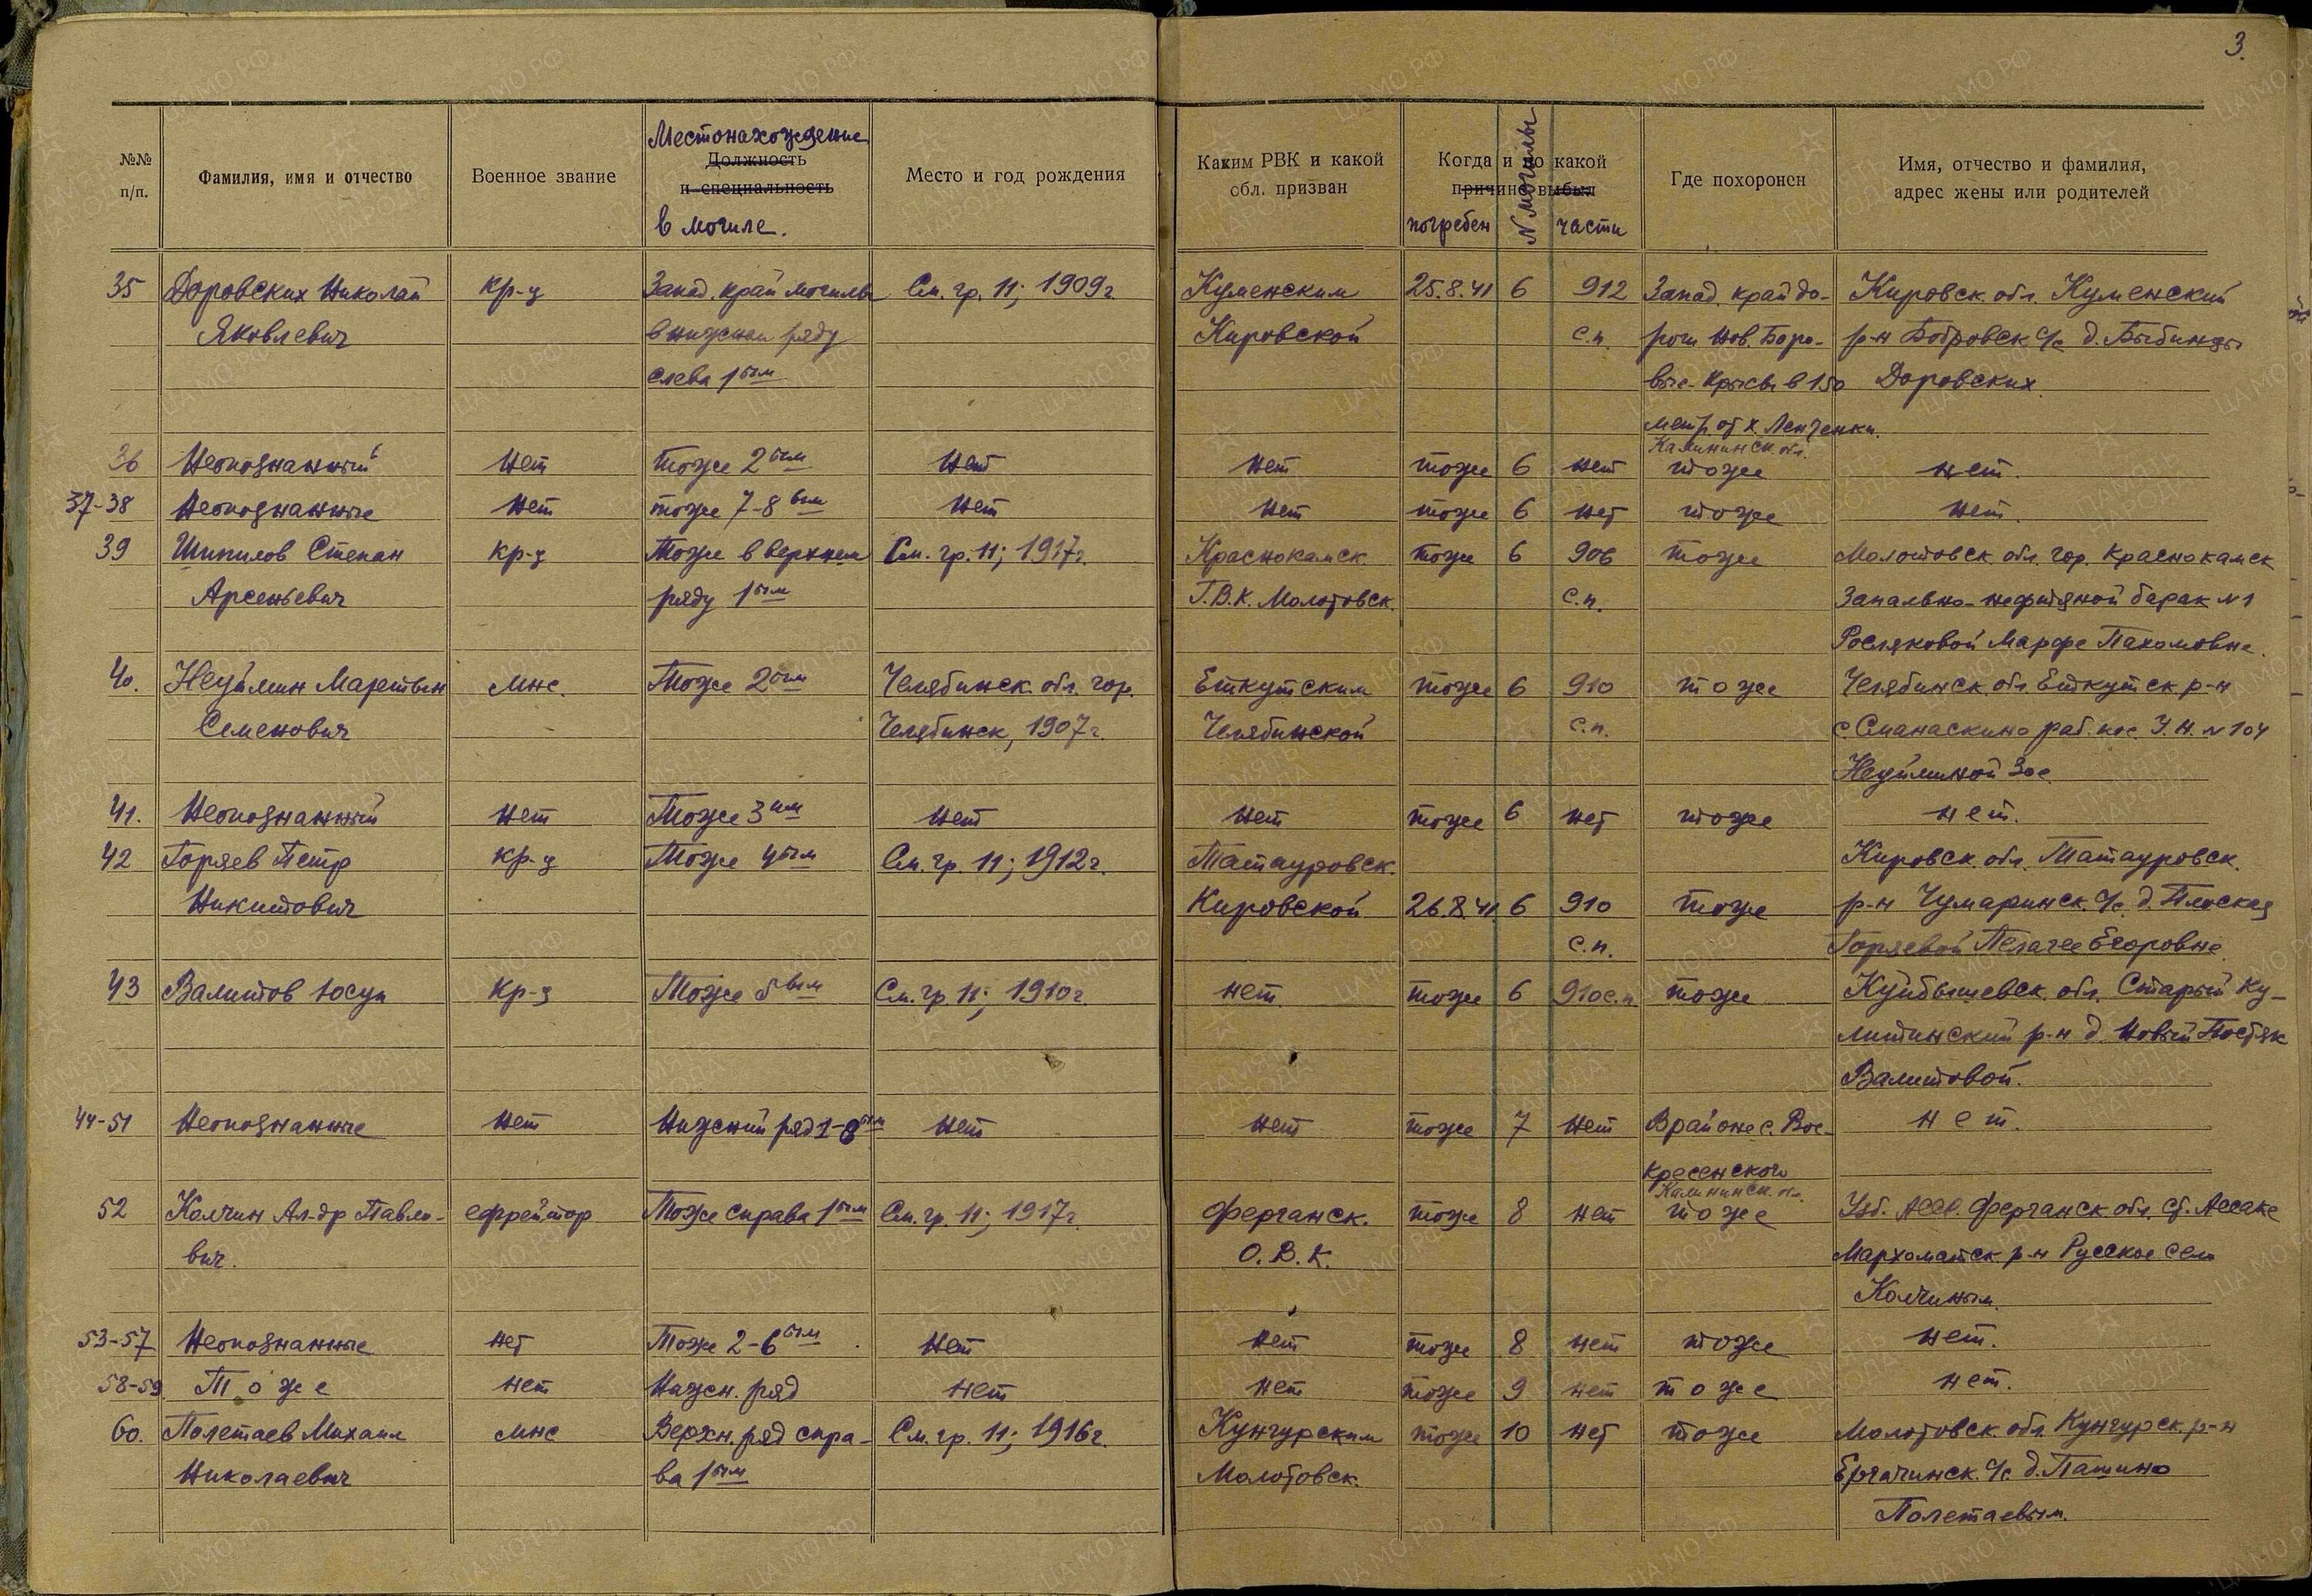 3.
№№ п/п.
Фамилия, имя и отчество
Военное звание
Местонахождение
Должность
и специальность
в могиле.
Место и год рождения
Каким РВК и какой
обл. призван
Когда и по какой
причине выбыл
погребен
№ могилы
части
Где похоронен
Имя, отчество и фамилия,
адрес жены или родителей
35 Доровских Николай кр-ц Запад. край могилы См. гр. 11; 1909г. Куменским 25.8.41 6 912 Запад. край до- Кировск. обл. Куменский
Яковлевич в нижнем ряду Кировской с.п. роги Нов. Боро- р-н Бобровск с/с д. Быбинцы
слева 1ым вые-Крысы в 150 Доровских.
метр. от х. Ленченки.
Калининск. обл.
36 Неопознанный нет тоже 2ым нет нет тоже 6 нет тоже нет.
37-38 Неопознанные нет тоже 7-8ым нет нет тоже 6 нет тоже нет.
39 Шипилов Степан кр-ц Тоже в верхнем См. гр. 11; 1917г. Краснокамск. тоже 6 906 тоже Молотовск. обл. гор. Краснокамск
Арсеньевич ряду 1ым Г.В.К. Молотовск. с.п. Запально-нефтяной барак №1
Росляковой Марфе Пахомовне.
40. Неуймин Мартын мнс. Тоже 2ым Челябинск. обл. гор. Еткутским тоже 6 910 тоже Челябинск. обл. Еткутск р-н
Семенович Челябинск, 1907г. Челябинской с.п. раб. пос. У.Н. №104
Неуйминой Зое
41. Неопознанный нет Тоже 3им нет нет тоже 6 нет тоже нет.
42 Горяев Петр кр-ц Тоже 4ым См. гр. 11; 1912г. Татауровск. Кировск. обл. Татауровск.
Никитович Кировской 26.8.41 6 910 тоже р-н Чумаринск. с/с. д. Плоская
с.п. Горяевой Пелагее Егоровне
43 Валитов Юсуп кр-ц Тоже 5ым См. гр. 11; 1910г. нет тоже 6 910с.п. тоже Куйбышевск. обл. Старый Ку-
литинский р-н д. Новый
Валитовой.
44-51 Неопознанные нет Нижний ряд 1-8ым нет нет тоже 7 нет В районе с. Вос- нет.
кресенского
Калининск. обл.
52 Колчин Ал-др Павло- ефрейтор Тоже справа 1ым См. гр. 11; 1917г. Ферганск. тоже 8 нет тоже Узб. Ферганск. обл. ст. Ассаке
вич. О.В.К. Мархоматск. р-н Русское село
Колчиным.
53-57 Неопознанные нет Тоже 2-6ым нет нет тоже 8 нет тоже нет.
58-59. Тоже нет Нижн. ряд нет нет тоже 9 нет тоже нет.
60. Полетаев Михаил мнс Верхн. ряд спра- См. гр. 11; 1916г. Кунгурским тоже 10 нет тоже Молотовск. обл. Кунгурск. р-н
Николаевич ва 1ым Молотовск. Ергачинск. с/с д. Пашино
Полетаевым.